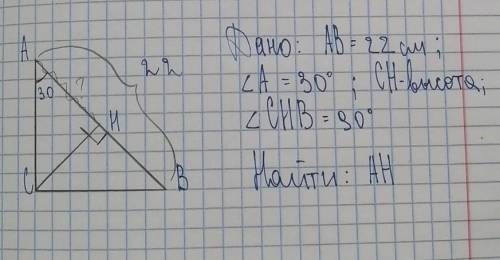 Дано: AB = 22 см;
∠A = 30°; CH-высота;
∠CHB = 90°
Найти: AH
A
22
30
?
H
C
B